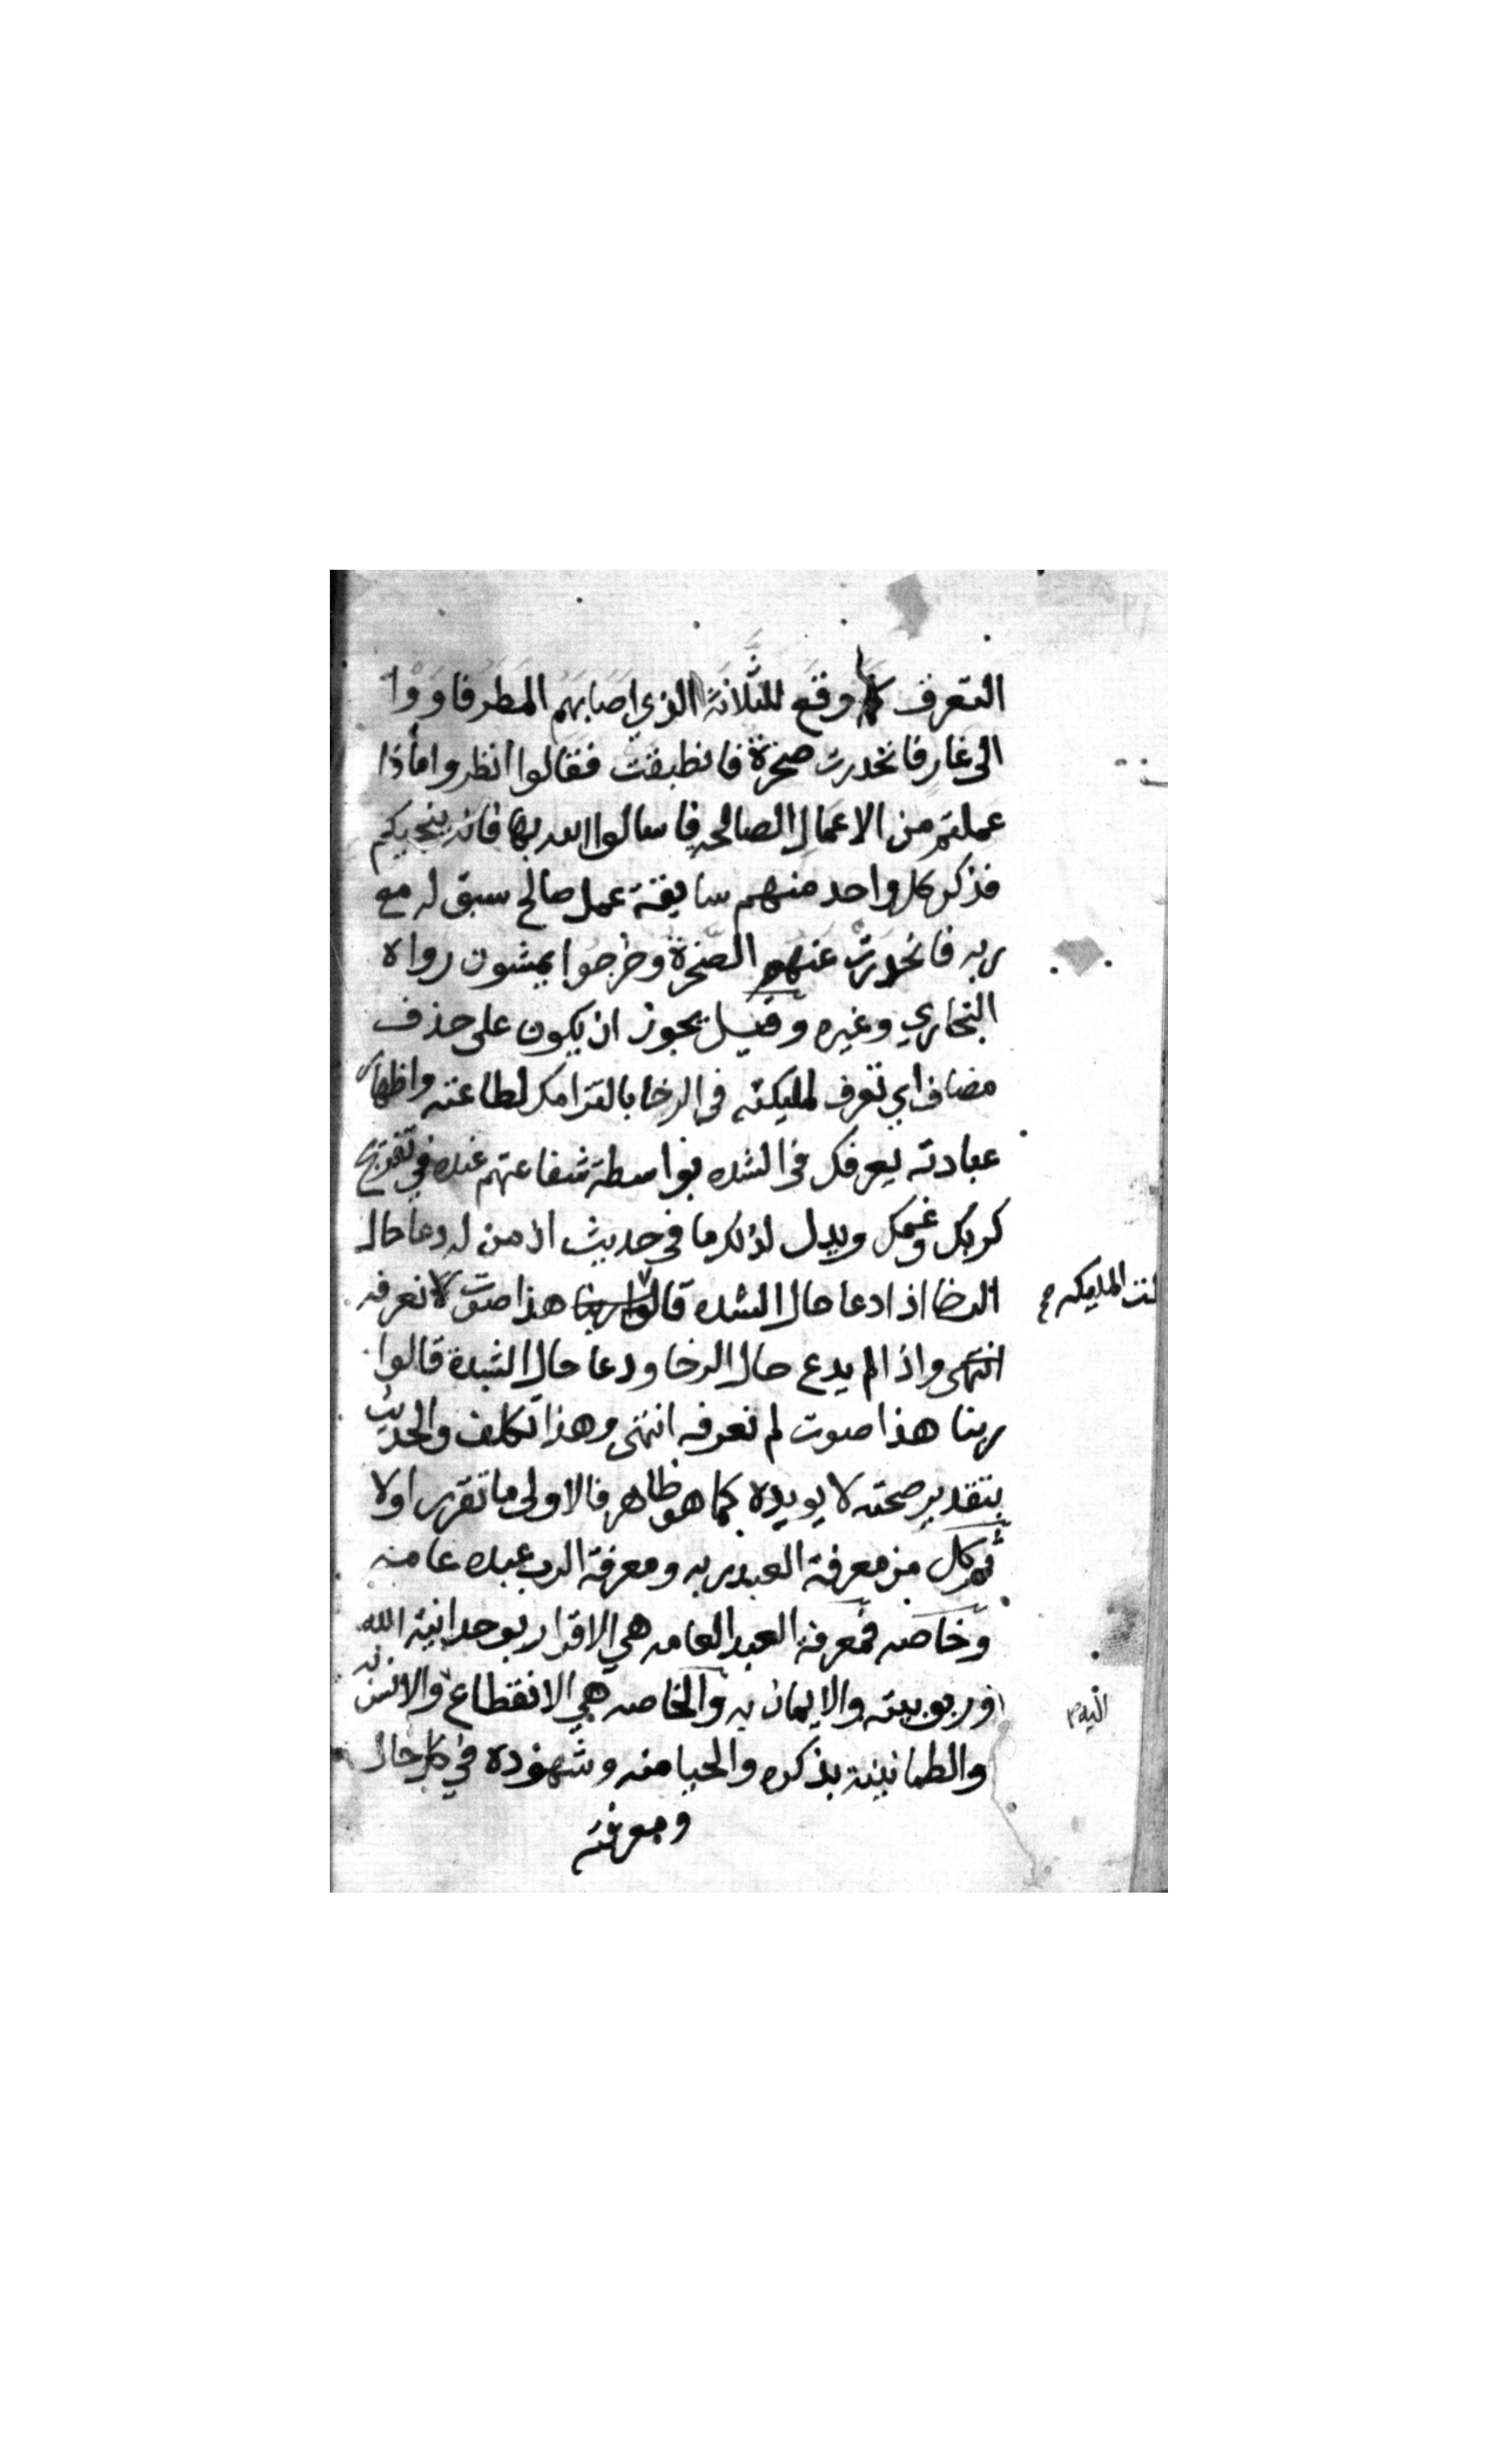 التعرف كما وقع للثلاثة الذي اصابهم المطر فاووا
الى غار فانحدرت صخرة فانطبقت فقالوا انظروا ماذا
عملتم من الاعمال الصالحه فاسالوا الله بها فانه ينجيكم
فذكر كل واحد منهم سابقة عمل صالح سبق له مع
ربه فانحدرت عنهم الصخرة وخرجوا يمشون رواه
البخاري وغيره وقيل يجوز ان يكون على حذف
مضاف اي تعرف لمليكته في الرخا بالتزامك لطاعته واظهار
عبادته يعرفك في الشده بواسطة شفاعتهم عنده في تفريج
كربك وغمك ويدل لذلك ما في حديث ان من له دعا حال
الرخا اذا دعا حال الشده قالوا ربنا هذا صوت لا نعرفه
انتهى واذا لم يدع حال الرخا ودعا حال الشدة قالوا
ربنا هذا صوت لم نعرفه انتهى وهذا تكلف والحديث
بتقدير صحته لا يويده كما هو ظاهر فالاولى ما تقرر اولا
ثم كل من معرفة العبد ربه ومعرفة الرب عبده عامه
وخاصه فمعرفة العبد العامه هي الاقرار بوحدانية الله
وربوبيته والايمان به والخاصه هي الانقطاع والانس به
والطمانينة بذكره والحيا منه وشهوده في كل حال
ومعرفته
المليكه صح
اليه